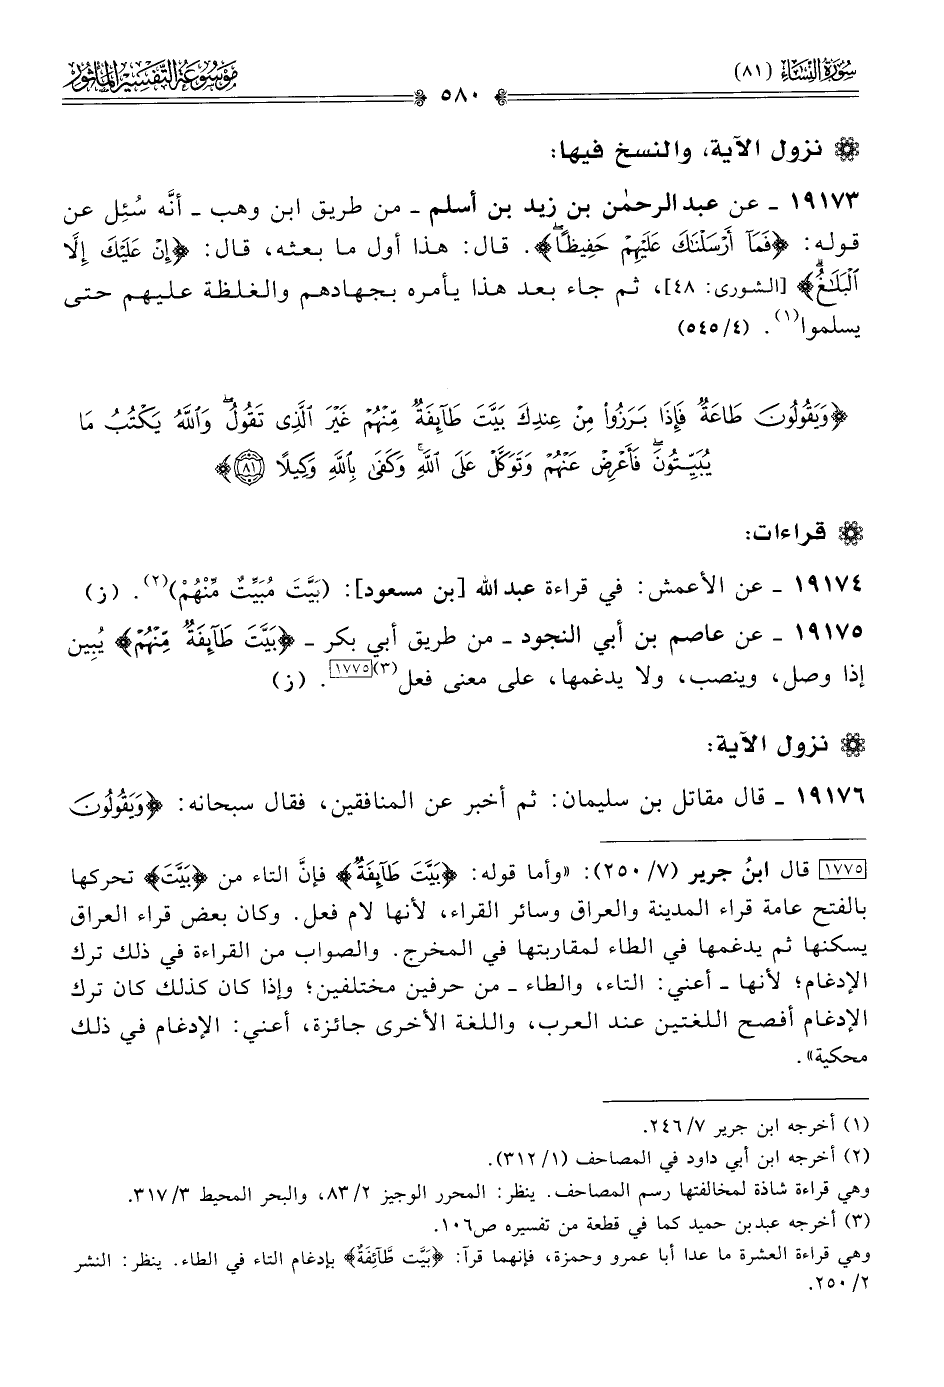 سُورَةُ النِّسَاءِ (٨١)
٥٨٠
مَوْسُوعَةُ التَّفْسِيرِ المَأْثُور
نزول الآية، والنسخ فيها:
١٩١٧٣ ـ عن عبد الرحمٰن بن زيد بن أسلم ـ من طريق ابن وهب ـ أنَّه سُئِل عن
قوله: ﴿فَمَآ أَرْسَلْنَٰكَ عَلَيْهِمْ حَفِيظًا﴾. قال: هذا أول ما بعثه، قال: ﴿إِنْ عَلَيْكَ إِلَّا
ٱلْبَلَٰغُ﴾ [الشورى: ٤٨]، ثم جاء بعد هذا يأمره بجهادهم والغلظة عليهم حتى
يسلموا(١). (٤/ ٥٤٥)
﴿وَيَقُولُونَ طَاعَةٌ فَإِذَا بَرَزُوا۟ مِنْ عِندِكَ بَيَّتَ طَآئِفَةٌ مِّنْهُمْ غَيْرَ ٱلَّذِى تَقُولُ ۖ وَٱللَّهُ يَكْتُبُ مَا
يُبَيِّتُونَ ۖ فَأَعْرِضْ عَنْهُمْ وَتَوَكَّلْ عَلَى ٱللَّهِ ۚ وَكَفَىٰ بِٱللَّهِ وَكِيلًا ٨١﴾
قراءات:
١٩١٧٤ ـ عن الأعمش: في قراءة عبد الله [بن مسعود]: (بَيَّتَ مُبَيِّتٌ مِّنْهُمْ)(٢). (ز)
١٩١٧٥ ـ عن عاصم بن أبي النجود ـ من طريق أبي بكر ـ ﴿بَيَّتَ طَآئِفَةٌ مِّنْهُمْ﴾ يُبين
إذا وصل، وينصب، ولا يدغمها، على معنى فعل(٣)[١٧٧٥]. (ز)
نزول الآية:
١٩١٧٦ ـ قال مقاتل بن سليمان: ثم أخبر عن المنافقين، فقال سبحانه: ﴿وَيَقُولُونَ
[١٧٧٥] قال ابنُ جرير (٧/ ٢٥٠): «وأما قوله: ﴿بَيَّتَ طَآئِفَةٌ﴾ فإنَّ التاء من ﴿بَيَّتَ﴾ تحركها
بالفتح عامة قراء المدينة والعراق وسائر القراء، لأنها لام فعل. وكان بعض قراء العراق
يسكنها ثم يدغمها في الطاء لمقاربتها في المخرج. والصواب من القراءة في ذلك ترك
الإدغام؛ لأنها ـ أعني: التاء، والطاء ـ من حرفين مختلفين؛ وإذا كان كذلك كان ترك
الإدغام أفصح اللغتين عند العرب، واللغة الأخرى جائزة، أعني: الإدغام في ذلك
محكية».
(١) أخرجه ابن جرير ٧/ ٢٤٦.
(٢) أخرجه ابن أبي داود في المصاحف (١/ ٣١٢).
وهي قراءة شاذة لمخالفتها رسم المصاحف. ينظر: المحرر الوجيز ٢/ ٨٣، والبحر المحيط ٣/ ٣١٧.
(٣) أخرجه عبد بن حميد كما في قطعة من تفسيره ص١٠٦.
وهي قراءة العشرة ما عدا أبا عمرو وحمزة، فإنهما قرآ: ﴿بَيَّت طَّآئِفَةٌ﴾ بإدغام التاء في الطاء. ينظر: النشر
٢/ ٢٥٠.